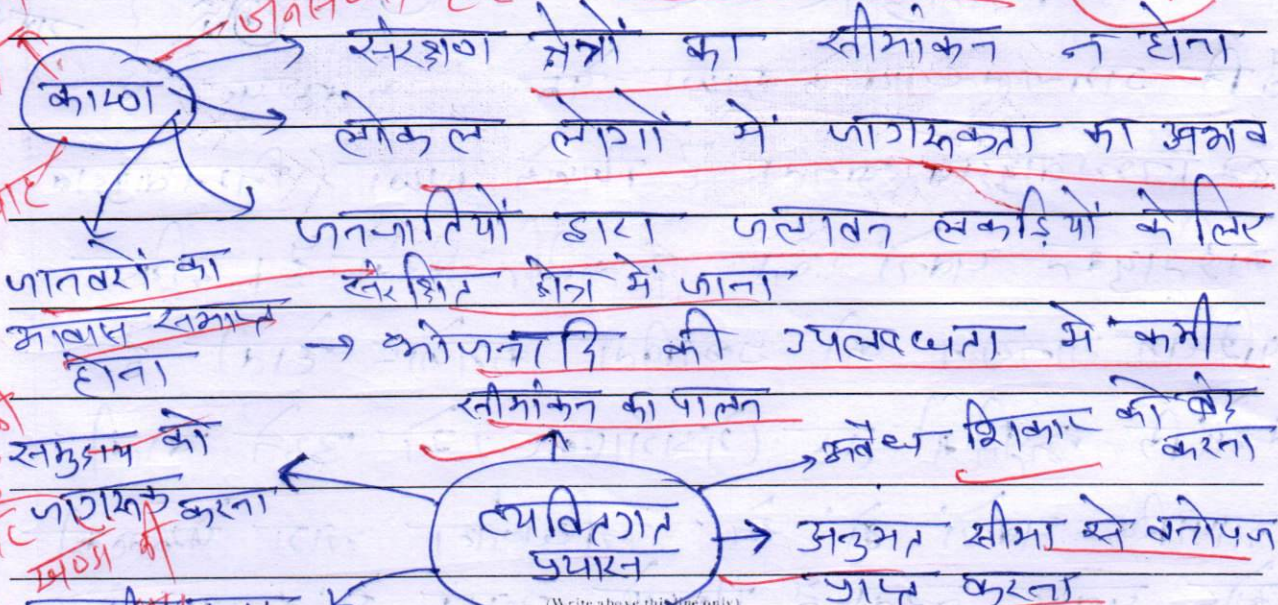 संरक्षण क्षेत्रों का सीमांकन न होना
कारण
लोकल लोगों में जागरूकता का अभाव
जनजातियों द्वारा जलावन लकड़ियों के लिए
संरक्षित क्षेत्र में जाना
जानवरों का
आवास समाप्त
होना
→ भोजनादि की उपलब्धता में कमी
सीमांकन का पालन
अवैध शिकार को बंद
करना
समुदाय को
जागरूक करना
व्यक्तिगत
प्रयास
अनुमत सीमा से वनोपज
प्राप्त करना
(Write above this line only)